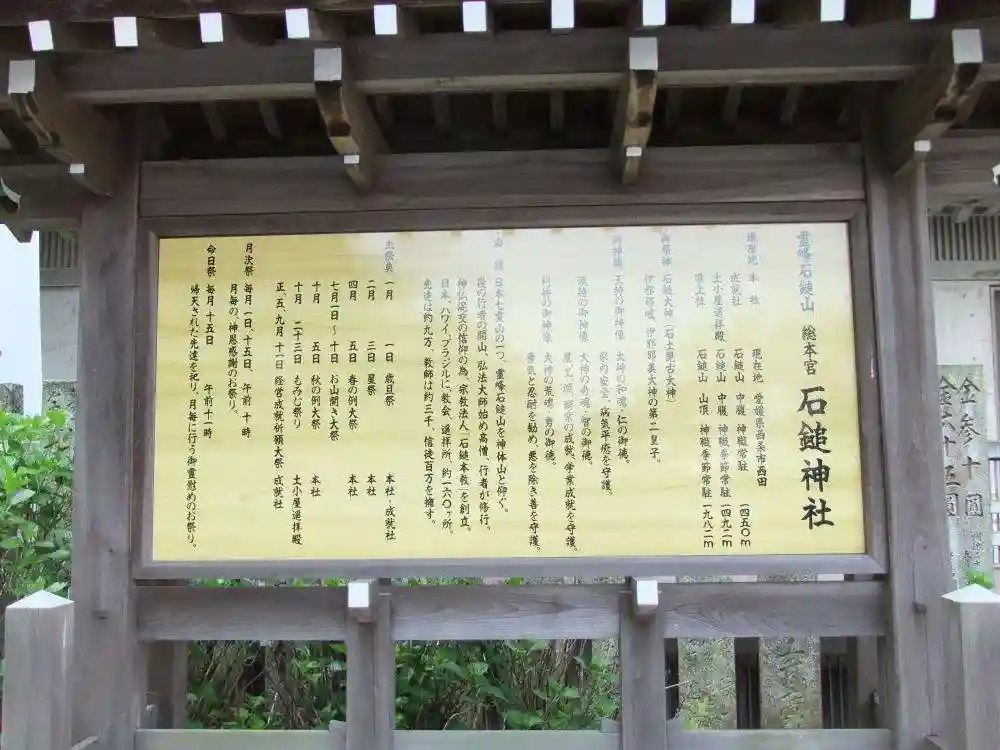 霊峰石鎚山 総本宮 石鎚神社
鎮座地 本社 現在地 愛媛県西条市西田
成就社 石鎚山 中腹 神職常駐 一四五〇m
土小屋遥拝殿 石鎚山 中腹 神職季節常駐 一四九二m
頂上社 石鎚山 山頂 神職季節常駐 一九八二m
御祭神 石鎚大神(石土毘古大神)
伊邪那岐、伊邪那美大神の第二皇子。
御神像 玉持の御神像 大神の和魂・仁の御徳。
家内安全、病気平癒を守護。
鏡持の御神像 大神の奇魂・智の御徳。
商工、漁、農業の成就、学業成就を守護。
剣持の御神像 大神の荒魂・勇の御徳。
勇気と忍耐を勧め、悪を除き善を守護。
由緒 日本七霊山の一つ、霊峰石鎚山を神体山と仰ぐ。
役の行者の開山、弘法大師始め高僧、行者が修行。
神仏混交の信仰の為、宗教法人「石鎚本教」を創立。
日本、ハワイ、ブラジルに、教会、遥拝所、約一六〇ヶ所。
先達は約九万、教師は約三千、信徒百万を擁す。
主祭典 一月 一日 歳旦祭 本社・成就社
二月 三日 星祭 本社
四月 五日 春の例大祭 本社
七月一日〜十日 お山開き大祭
十月 五日 秋の例大祭 本社
十月 二十三日 もみじ祭り 土小屋遥拝殿
正、五、九月 十一日 経営成就祈願大祭 成就社
月次祭 毎月 一日、十五日、午前 十時
毎月の、神恩感謝のお祭り。
今日祭 毎月 十五日 午前 十一時
帰天された先達を祀り、月毎に行う御霊慰めのお祭り。
金参十圓